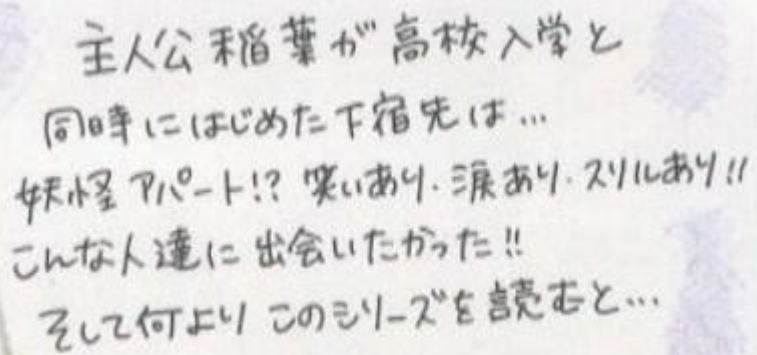 主人公 稲葉が高校入学と
同時にはじめた下宿先は…
妖怪アパート!? 笑いあり・涙あり・スリルあり!!
こんな人達に出会いたかった!!
そして何よりこのシリーズを読むと…